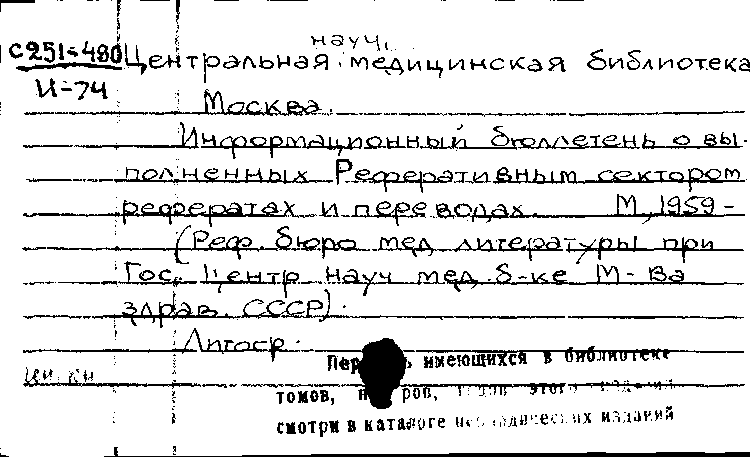 науч.
С251-480 Центральная медицинская библиотека
И-74
Москва.
Информационный бюллетень о вы-
полненных Реферативным сектором
рефератах и переводах. М., 1959-
(Реф. бюро мед литературы при
Гос. Центр науч мед. б-ке М-ва
здрав. СССР).
Литогр.
имеющихся в библиотеке
томов, этого
смотри в каталоге периодических изданий